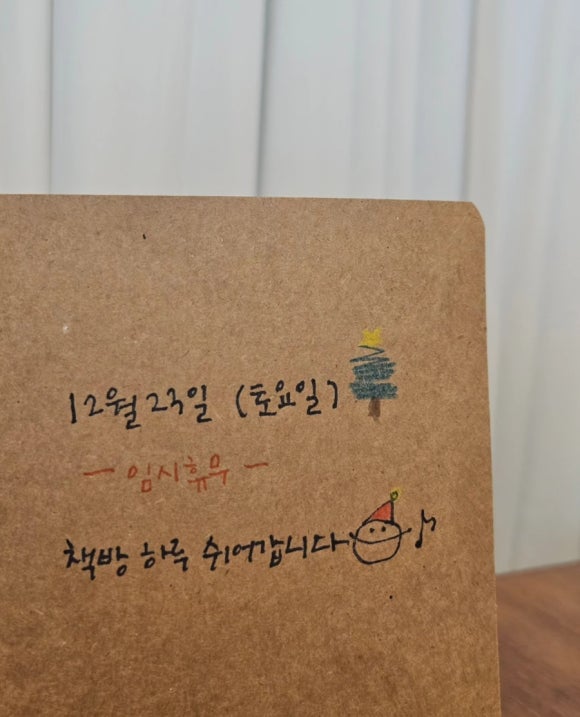 12월 23일 (토요일)
- 임시휴무 -
책방 하루 쉬어갑니다